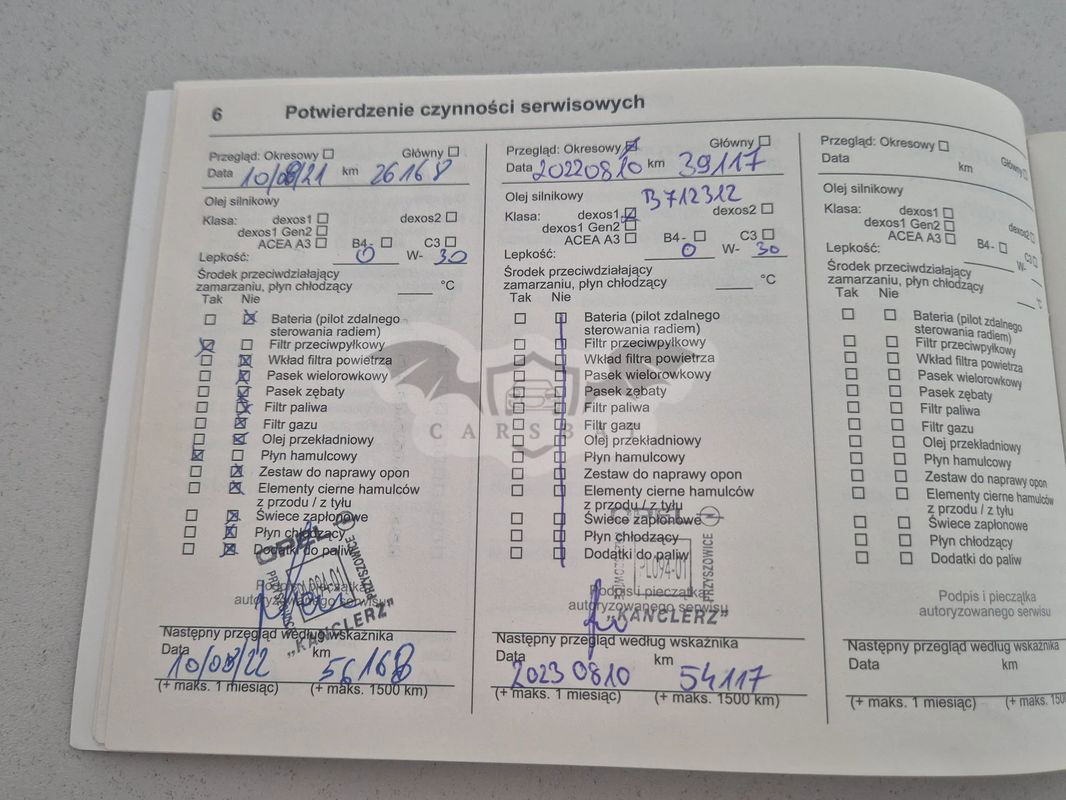 6 Potwierdzenie czynności serwisowych
Przegląd: Okresowy Główny
Data 10/08/21 km 26168
Olej silnikowy
Klasa: dexos1 dexos2
dexos1 Gen2
ACEA A3 B4- C3
Lepkość: 0 W- 30
Środek przeciwdziałający
zamarzaniu, płyn chłodzący °C
Tak Nie
Bateria (pilot zdalnego
sterowania radiem)
Filtr przeciwpyłkowy
Wkład filtra powietrza
Pasek wielorowkowy
Pasek zębaty
Filtr paliwa
Filtr gazu
Olej przekładniowy
Płyn hamulcowy
Zestaw do naprawy opon
Elementy cierne hamulców
z przodu / z tyłu
Świece zapłonowe
Płyn chłodzący
Dodatki do paliw
OPEL
PL094-01
PRZYSZOWICE
Podpis i pieczątka
autoryzowanego serwisu
"KANCLERZ"
Następny przegląd według wskaźnika
Data km
10/08/22 56168
(+ maks. 1 miesiąc) (+ maks. 1500 km)
Przegląd: Okresowy Główny
Data 20220810 km 39117
Olej silnikowy B712312
Klasa: dexos1 dexos2
dexos1 Gen2
ACEA A3 B4- C3
Lepkość: 0 W- 30
Środek przeciwdziałający
zamarzaniu, płyn chłodzący °C
Tak Nie
Bateria (pilot zdalnego
sterowania radiem)
Filtr przeciwpyłkowy
Wkład filtra powietrza
Pasek wielorowkowy
Pasek zębaty
Filtr paliwa
Filtr gazu
Olej przekładniowy
Płyn hamulcowy
Zestaw do naprawy opon
Elementy cierne hamulców
z przodu / z tyłu
Świece zapłonowe
Płyn chłodzący
Dodatki do paliw
OPEL
PL094-01
PRZYSZOWICE
Podpis i pieczątka
autoryzowanego serwisu
"KANCLERZ"
Następny przegląd według wskaźnika
Data km
20230810 54117
(+ maks. 1 miesiąc) (+ maks. 1500 km)
Przegląd: Okresowy Główny
Data km
Olej silnikowy
Klasa: dexos1 dexos2
dexos1 Gen2
ACEA A3 B4- C3
Lepkość: W-
Środek przeciwdziałający
zamarzaniu, płyn chłodzący °C
Tak Nie
Bateria (pilot zdalnego
sterowania radiem)
Filtr przeciwpyłkowy
Wkład filtra powietrza
Pasek wielorowkowy
Pasek zębaty
Filtr paliwa
Filtr gazu
Olej przekładniowy
Płyn hamulcowy
Zestaw do naprawy opon
Elementy cierne hamulców
z przodu / z tyłu
Świece zapłonowe
Płyn chłodzący
Dodatki do paliw
Podpis i pieczątka
autoryzowanego serwisu
Następny przegląd według wskaźnika
Data km
(+ maks. 1 miesiąc) (+ maks. 150